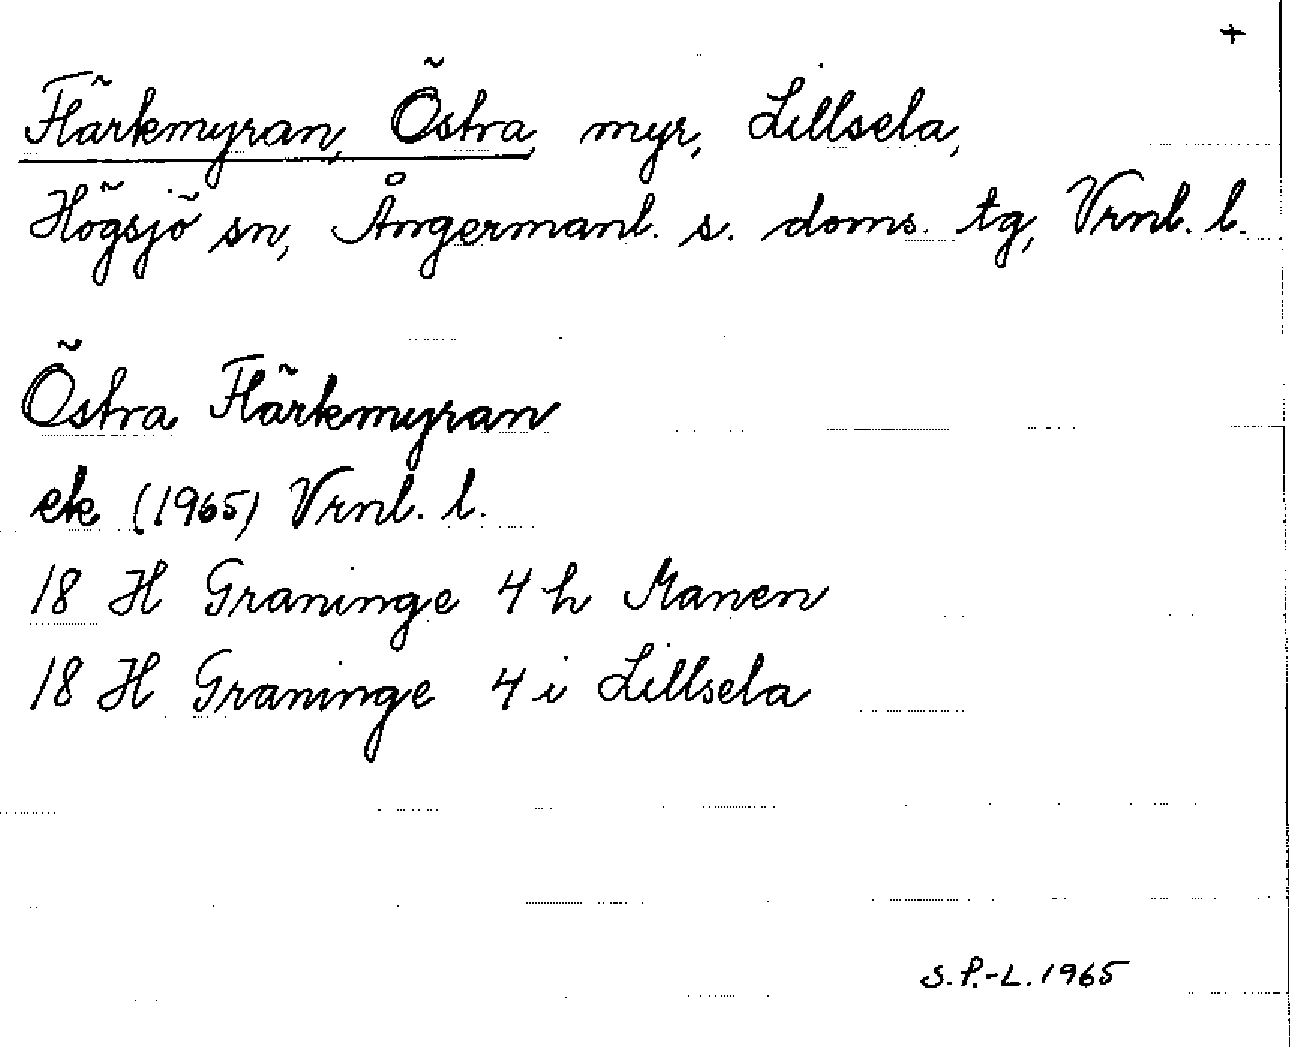 +
Flärkmyran, Östra, myr, Lillsela,
Högsjö sn, Ångermanl. s. doms. tg, Vrnl. l.
Östra Flärkmyran
ek (1965) Vrnl. l.
18 H Graninge 4 h Manen
18 H Graninge 4 i Lillsela
S.P.-L. 1965